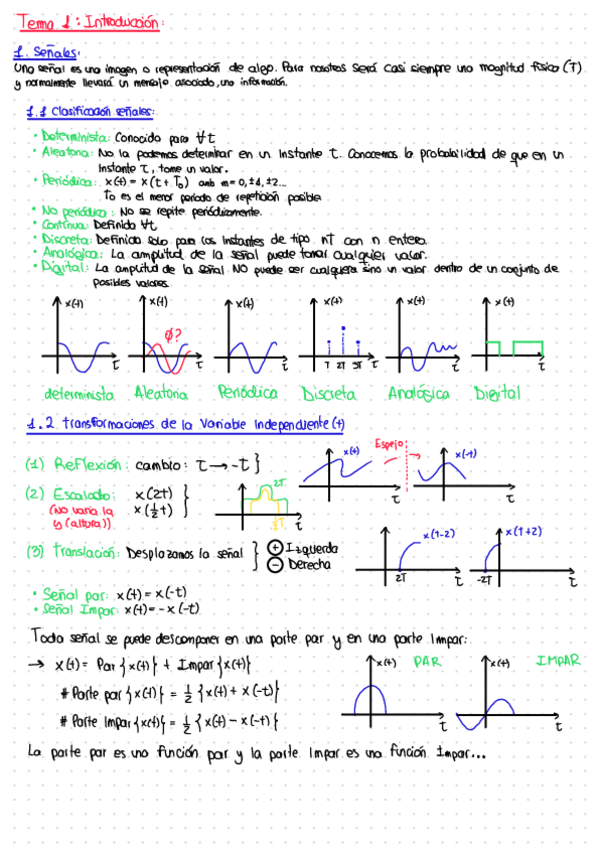 Tema 1: Introducción:
1. Señales:
Una señal es una imagen o representación de algo. Para nosotros será casi siempre una magnitud física (t)
y normalmente llevará un mensaje asociado, una información.
1.1 Clasificación señales:
• Determinista: Conocida para ∀t
• Aleatoria: No la podemos determinar en un instante t. Conocemos la probabilidad de que en un
instante t, tome un valor.
• Periódica: x(t) = x(t + T₀) con m = 0, ±1, ±2...
T₀ es el menor periodo de repetición posible
• No periódica: No se repite periódicamente.
• Continua: Definida ∀t
• Discreta: Definida solo para los instantes de tipo nT con n entero.
• Analógica: La amplitud de la señal puede tomar cualquier valor.
• Digital: La amplitud de la señal NO puede ser cualquiera sino un valor dentro de un conjunto de
posibles valores.
x(t) x(t) x(t) x(t) x(t) x(t)
φ?
T 2T 3T
t t t t t t
determinista Aleatoria Periódica Discreta Analógica Digital
1.2 transformaciones de la Variable Independiente (t)
(1) Reflexión: cambio: t → -t }
x(t) Espejo x(-t)
t t
(2) Escalado: x(2t) }
(No varía la x(½t)
y (altura))
2T
t
(3) translación: Desplazamos la señal } + Izquierda
- Derecha
x(t-2) x(t+2)
2T t -2T t
• Señal par: x(t) = x(-t)
• Señal Impar: x(t) = - x(-t)
Toda señal se puede descomponer en una parte par y en una parte Impar:
→ x(t) = Par{x(t)} + Impar{x(t)}
# Parte par{x(t)} = ½ {x(t) + x(-t)}
# Parte Impar{x(t)} = ½ {x(t) - x(-t)}
x(t) PAR x(t) IMPAR
t t
La parte par es una función par y la parte Impar es una función Impar...